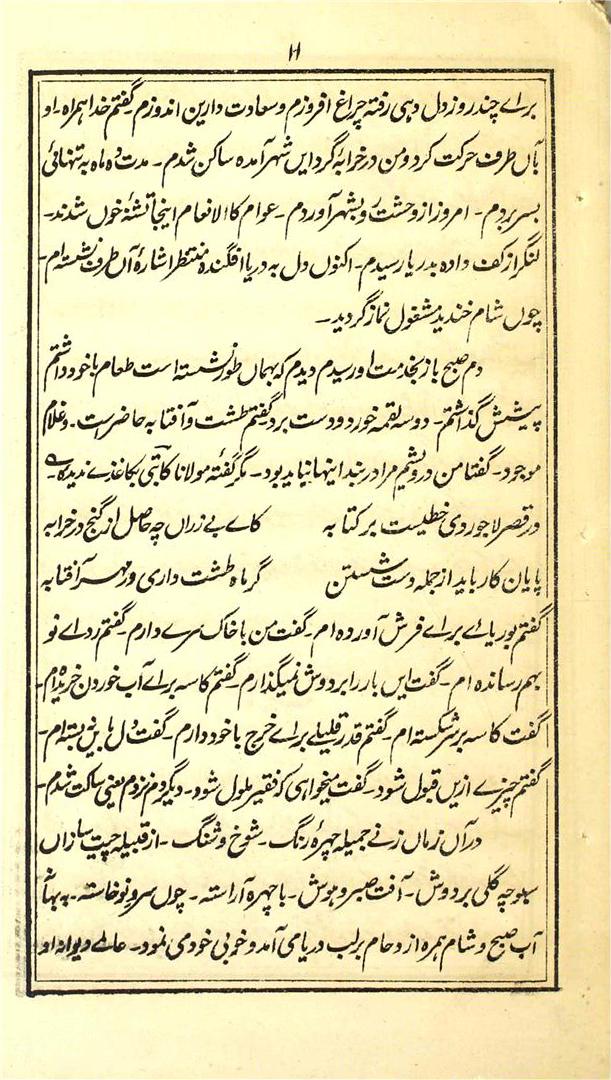 ۱۱
برائے چند روز دل دہی رفتہ چراغ افروزم و سعادت دارین اندوزم۔ گفتم خدا ہمراہ۔ او
بآں طرف حرکت کرد و من در خرابۂ گرد ایں شہر آمدہ ساکن شدم۔ مدت دہ ماہ بہ تنہائی
بسر بردم۔ امروز از وحشت رو بشہر آوردم۔ عوام کالانعام اینجا تشنۂ خوں شدند۔
لنگر از کف دادہ بدریا رسیدم۔ اکنوں دل بہ دریا افگندہ منتظر اشارۂ آں طرف نشستہ ام۔
چوں شام خندید مشغول نماز گردید۔
دم صبح باز بخدمت او رسیدم دیدم کہ بہماں طور نشستہ است طعام با خود داشتم
پیشش گذاشتم۔ دو سہ لقمہ خورد و دست برد گفتم طشت و آفتابہ حاضر است۔ و غلام
موجود۔ گفتا من درویشم مرا در بند اینہا نباید بود۔ مگر گفتۂ مولانا کاتبی بکاغذے ندیدۂ۔
در قصر لاجوردی خطیست بر کتابہ    کاے بے زراں چہ حاصل از گنج در خرابہ
پایان کار باید از جملہ دست شستن    گر ماہ طشت داری ور مہر آفتابہ
گفتم بوریائے برائے فرش آوردہ ام۔ گفت من با خاک سرے دارم۔ گفتم ردائے نو
بہم رساندہ ام۔ گفت ایں بار را بر دوش نمیگذارم۔ گفتم کاسہ برائے آب خوردن خریدہ ام۔
گفت کاسہ بر سر شکستہ ام۔ گفتم قدر قلیلے برائے خرج با خود دارم۔ گفت دل بایں نہ بستہ ام۔
گفتم چیزے ازیں قبول شود۔ گفت میخواہی کہ فقیر ملول شود۔ دیگر دم نزدم یعنی ساکت شدم۔
در آں زماں زنے جمیلہ چہرۂ رنگ۔ شوخ و شنگ۔ از قبیلۂ چیت سازاں
سبوچۂ گلی بر دوش۔ آفت صبر و ہوش۔ با چہرہ آراستہ۔ چوں سرو نوخاستہ۔ بہ بہانۂ
آب صبح و شام ہمرہ ازدحام بر لب دریا می آمد و خوبی خود می نمود۔ عالمے دیوانہ او